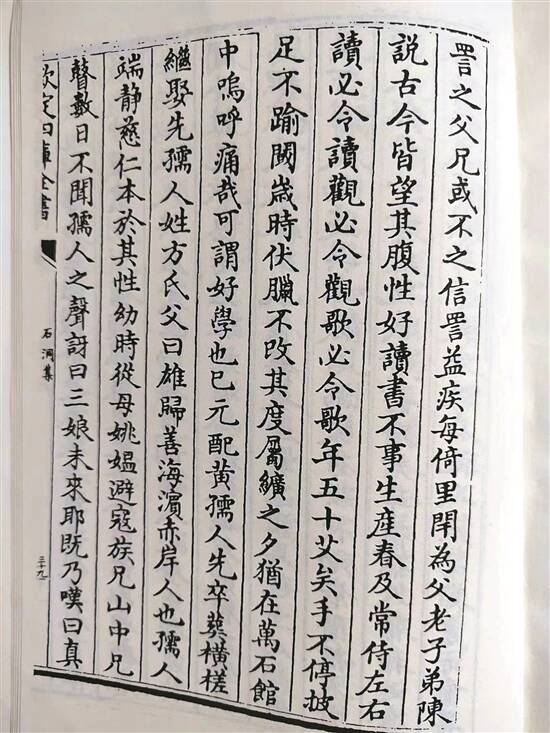 詈之父兄或不之信詈益疾每倚里閈為父老子弟陳
說古今皆望其腹性好讀書不事生産春及常侍左右
讀必令讀觀必令觀歌必令歌年五十艾矣手不停披
足不踰閾歳時伏臘不改其度屬纊之夕猶在萬石館
中嗚呼痛哉可謂好學也已元配黃孺人先卒葬橫槎
繼娶先孺人姓方氏父曰雄歸善海濱赤岸人也孺人
端静慈仁本於其性幼時從母姚媪避寇族兄山中兄
瞽數日不聞孺人之聲訝曰三娘未來耶既乃嘆曰真
欽定四庫全書
石洞集
三十九